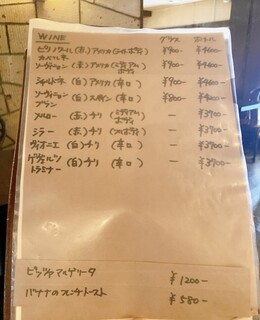 WINE グラス ボトル
ピノノワール (赤) アメリカ (ライトボディ) ¥900- ¥4600-
カベルネ
ソーヴィニョン (赤) アメリカ (ミディアムボディ) ¥900- ¥4600-
シャルドネ (白) アメリカ (辛口) ¥900- ¥4600-
ソーヴィニョン (白) スペイン (辛口) ¥800- ¥4000-
ブラン
メルロー (赤) チリ (ミディアムボディ) — ¥3900-
シラー (赤) チリ (フルボディ) — ¥3900-
ヴィオニエ (白) チリ (辛口) — ¥3900-
ゲヴュルツ (白) チリ (辛口) — ¥3900-
トラミナー
ピッツァマルゲリータ ¥1200-
バナナのフレンチトースト ¥580-